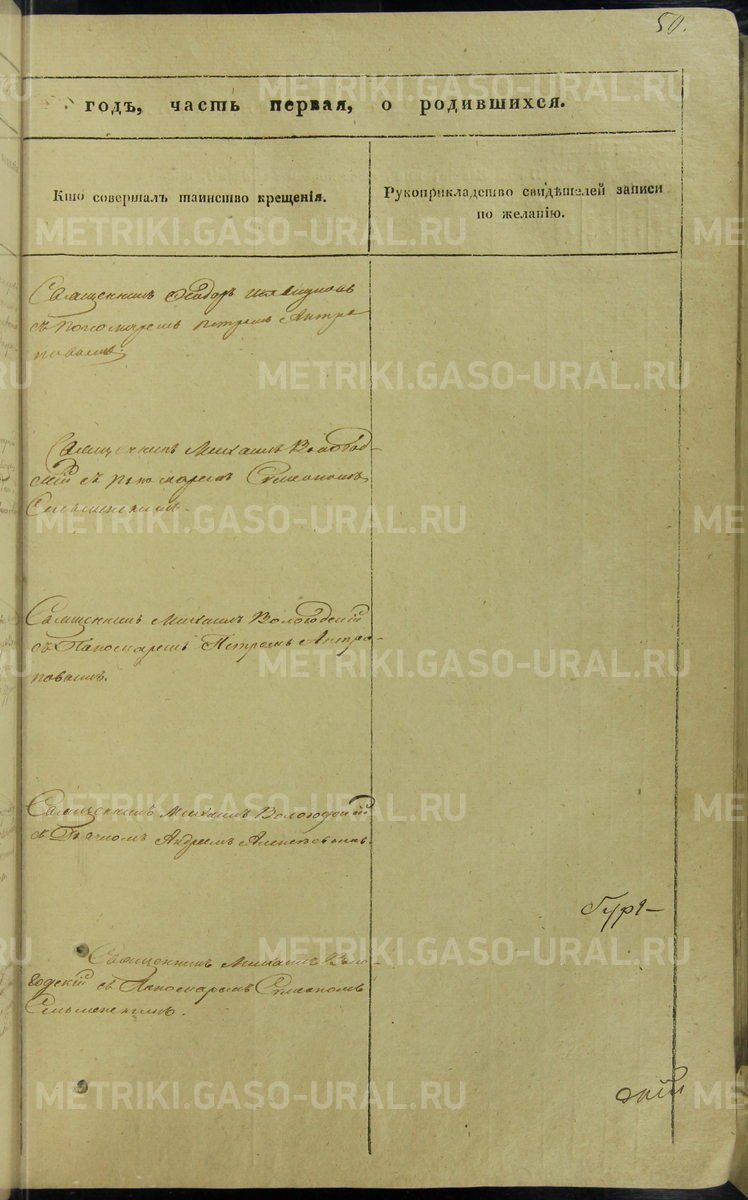 50.
годъ, часть первая, о родившихся.
Кто совершалъ таинство крещенія.
Рукоприкладство свидѣтелей записи
по желанію.
Священникъ Ѳеодоръ
съ Пономаремъ Петромъ Антро
повымъ.
Священникъ Михаилъ Волог
скій съ пономаремъ Стефаномъ
Священникъ Михаилъ Вологодскій
съ Пономаремъ Петромъ Антро-
повымъ.
Священникъ Михаилъ Вологодскій
съ Дьячкомъ Андреемъ
Священникъ Михаилъ Воло-
годскій съ Пономаремъ Стефаномъ
METRIKI.GASO-URAL.RU